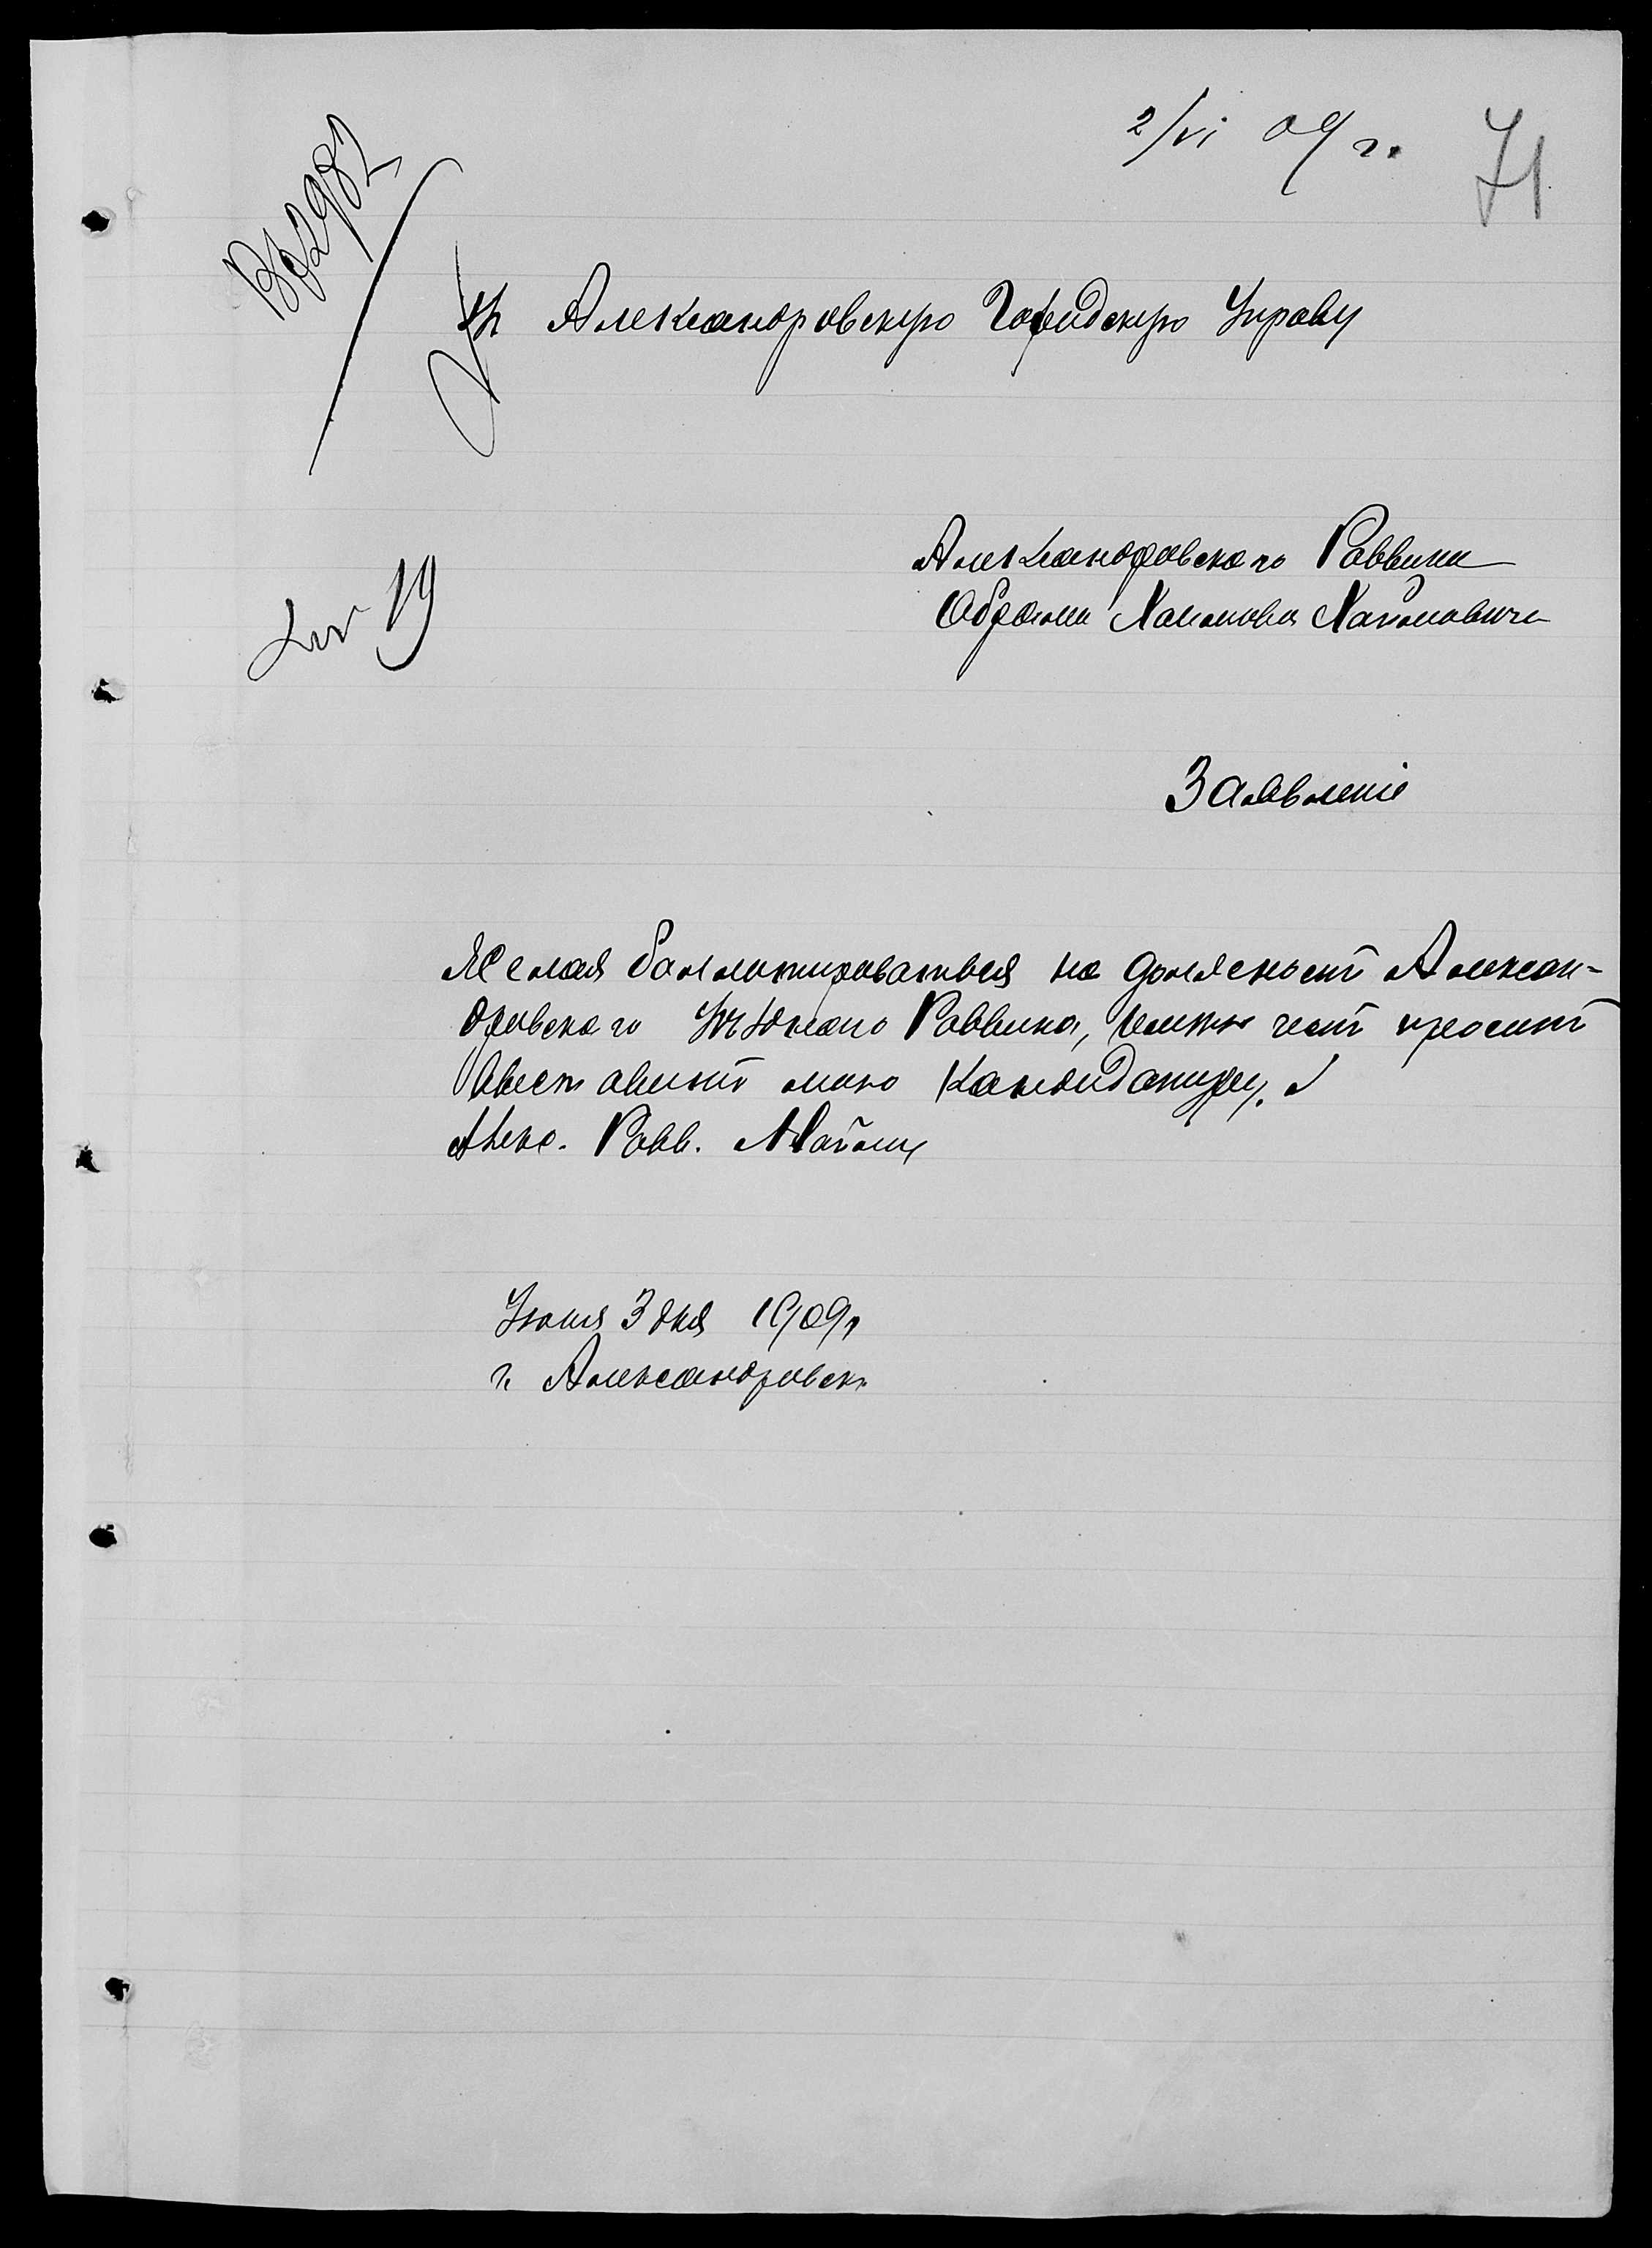 2/VI 09 г.
71
Вх 2982
Въ Александровскую Городскую Управу
Александровскаго Раввина
Абрама Хаимова Хаймовича
19
Заявленіе
Желая баллотироваться на должность Алексан-
дровскаго Уѣзднаго Раввина, имѣю честь просить
выставить мою кандидатуру.
Алекс. Равв. А Хайм
Іюня 3 дня 1909 г
г. Александровск